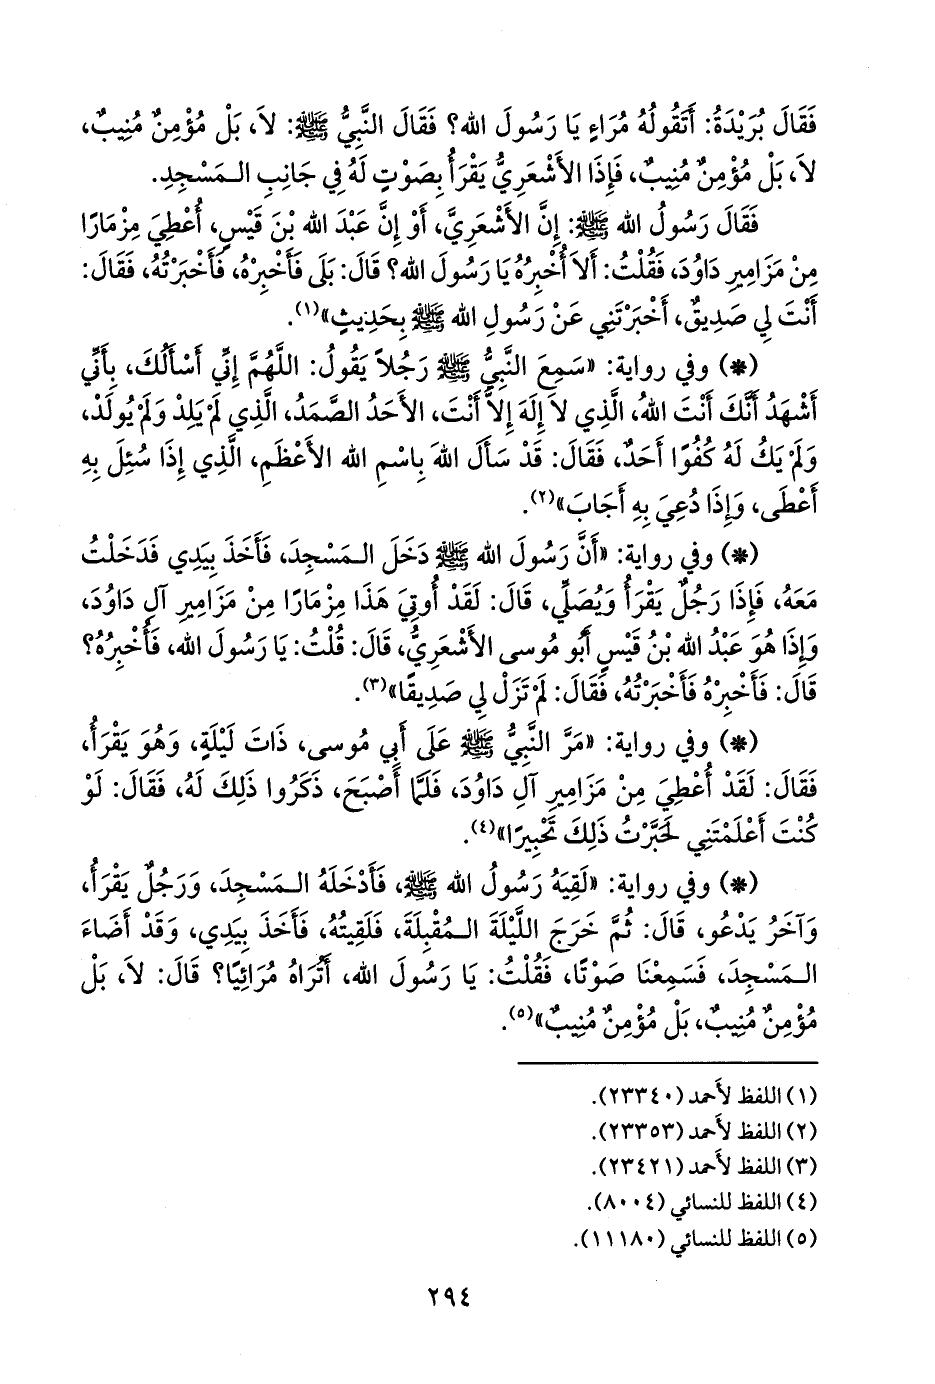 فَقَالَ بُرَيْدَةُ: أَتَقُولُهُ مُرَاءٍ يَا رَسُولَ الله؟ فَقَالَ النَّبِيُّ ﷺ: لاَ، بَلْ مُؤْمِنٌ مُنِيبٌ،
لاَ، بَلْ مُؤْمِنٌ مُنِيبٌ، فَإِذَا الأَشْعَرِيُّ يَقْرَأُ بِصَوْتٍ لَهُ فِي جَانِبِ الـمَسْجِدِ.
فَقَالَ رَسُولُ الله ﷺ: إِنَّ الأَشْعَرِيَّ، أَوْ إِنَّ عَبْدَ الله بْنَ قَيْسٍ، أُعْطِيَ مِزْمَارًا
مِنْ مَزَامِيرِ دَاوُدَ، فَقُلْتُ: أَلاَ أُخْبِرُهُ يَا رَسُولَ الله؟ قَالَ: بَلَى فَأَخْبِرْهُ، فَأَخْبَرْتُهُ، فَقَالَ:
أَنْتَ لِي صَدِيقٌ، أَخْبَرْتَنِي عَنْ رَسُولِ الله ﷺ بِحَدِيثٍ»(١).
(*) وفي رواية: «سَمِعَ النَّبِيُّ ﷺ رَجُلاً يَقُولُ: اللَّهُمَّ إِنِّي أَسْأَلُكَ، بِأَنِّي
أَشْهَدُ أَنَّكَ أَنْتَ اللهُ، الَّذِي لاَ إِلَهَ إِلاَّ أَنْتَ، الأَحَدُ الصَّمَدُ، الَّذِي لَمْ يَلِدْ وَلَمْ يُولَدْ،
وَلَمْ يَكُ لَهُ كُفُوًا أَحَدٌ، فَقَالَ: قَدْ سَأَلَ اللهَ بِاسْمِ الله الأَعْظَمِ، الَّذِي إِذَا سُئِلَ بِهِ
أَعْطَى، وَإِذَا دُعِيَ بِهِ أَجَابَ»(٢).
(*) وفي رواية: «أَنَّ رَسُولَ الله ﷺ دَخَلَ الـمَسْجِدَ، فَأَخَذَ بِيَدِي فَدَخَلْتُ
مَعَهُ، فَإِذَا رَجُلٌ يَقْرَأُ وَيُصَلِّي، قَالَ: لَقَدْ أُوتِيَ هَذَا مِزْمَارًا مِنْ مَزَامِيرِ آلِ دَاوُدَ،
وَإِذَا هُوَ عَبْدُ الله بْنُ قَيْسٍ أَبُو مُوسى الأَشْعَرِيُّ، قَالَ: قُلْتُ: يَا رَسُولَ الله، فَأُخْبِرُهُ؟
قَالَ: فَأَخْبِرْهُ فَأَخْبَرْتُهُ، فَقَالَ: لَمْ تَزَلْ لِي صَدِيقًا»(٣).
(*) وفي رواية: «مَرَّ النَّبِيُّ ﷺ عَلَى أَبِي مُوسى، ذَاتَ لَيْلَةٍ، وَهُوَ يَقْرَأُ،
فَقَالَ: لَقَدْ أُعْطِيَ مِنْ مَزَامِيرِ آلِ دَاوُدَ، فَلَمَّا أَصْبَحَ، ذَكَرُوا ذَلِكَ لَهُ، فَقَالَ: لَوْ
كُنْتَ أَعْلَمْتَنِي لَحَبَّرْتُ ذَلِكَ تَحْبِيرًا»(٤).
(*) وفي رواية: «لَقِيَهُ رَسُولُ الله ﷺ، فَأَدْخَلَهُ الـمَسْجِدَ، وَرَجُلٌ يَقْرَأُ،
وَآخَرُ يَدْعُو، قَالَ: ثُمَّ خَرَجَ اللَّيْلَةَ الـمُقْبِلَةَ، فَلَقِيتُهُ، فَأَخَذَ بِيَدِي، وَقَدْ أَضَاءَ
الـمَسْجِدَ، فَسَمِعْنَا صَوْتًا، فَقُلْتُ: يَا رَسُولَ الله، أَتُرَاهُ مُرَائِيًا؟ قَالَ: لاَ، بَلْ
مُؤْمِنٌ مُنِيبٌ، بَلْ مُؤْمِنٌ مُنِيبٌ»(٥).
(١) اللفظ لأَحمد (٢٣٣٤٠).
(٢) اللفظ لأَحمد (٢٣٣٥٣).
(٣) اللفظ لأَحمد (٢٣٤٢١).
(٤) اللفظ للنسائي (٨٠٠٤).
(٥) اللفظ للنسائي (١١١٨٠).
٢٩٤